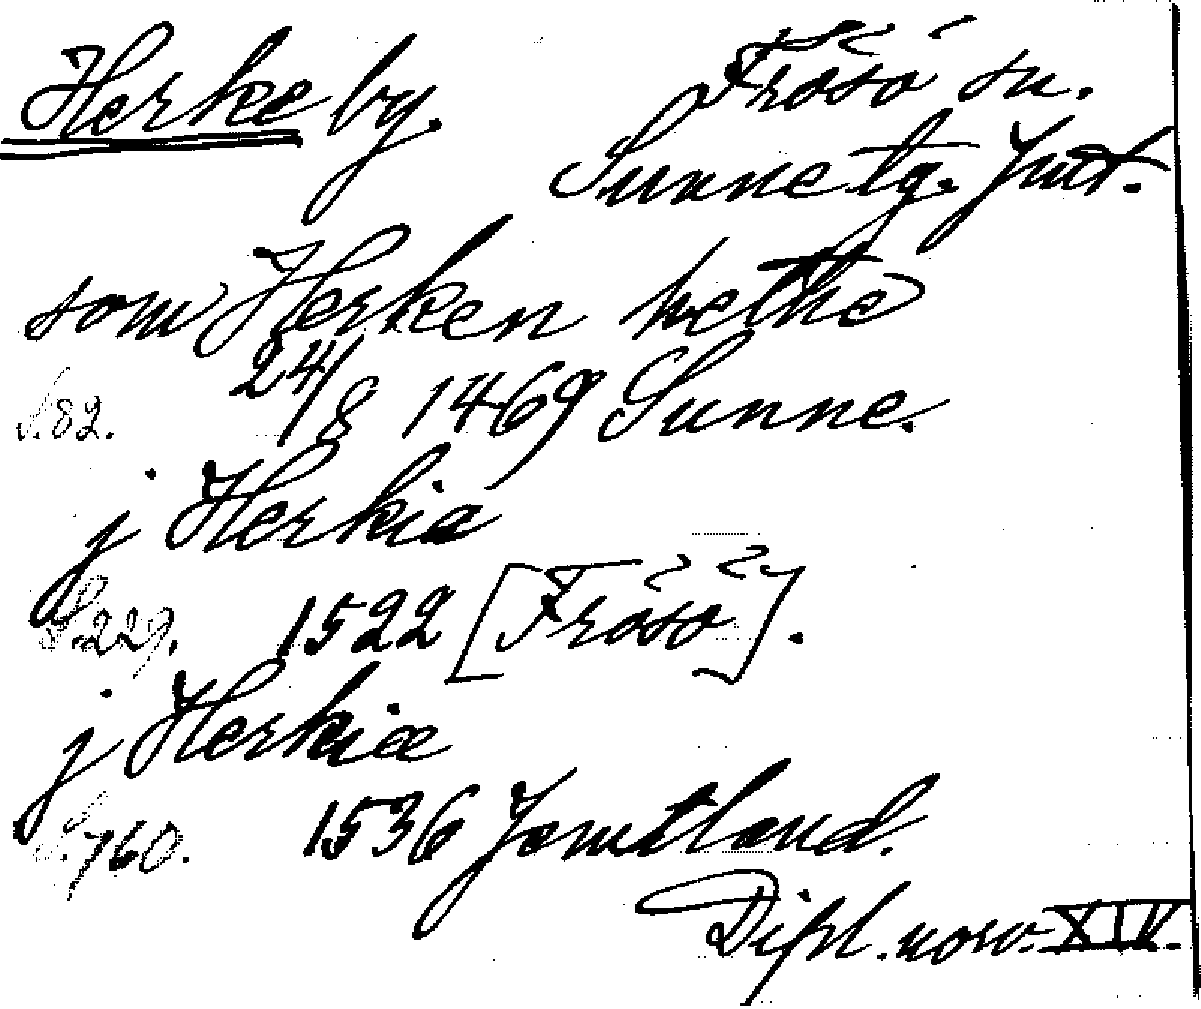 Herke by. Frösö sn.
Sunne tg. Jmt.
som Herken hethe
S. 82. 24/8 1469 Sunne.
j Herkiæ
S. 229. 1522 [Frösö].
j Herkiæ
S. 760. 1536 Jemtland.
Dipl. norv. XIV.